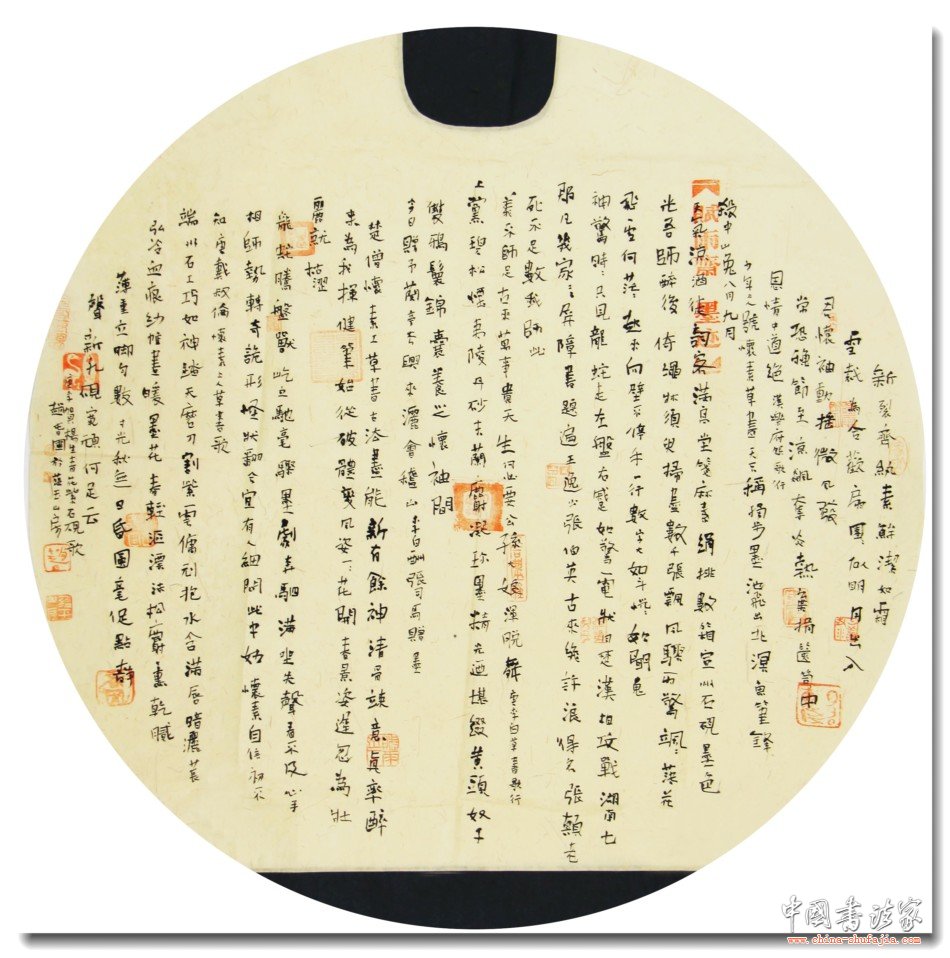 新裂齊紈素鮮潔如霜
雪裁為合歡扇團似明月出入
君懷袖動搖微風發
常恐秋節至涼飆奪炎熱棄捐篋笥中
恩情中道絕 漢樂府怨歌行
少年上人號懷素草書天下稱獨步墨池飛出北溟魚筆鋒
殺中山兔八月九月
天氣涼酒徒詞客滿高堂箋麻素絹排數箱宣州石硯墨色
光吾師醉後倚繩床須臾掃盡數千張飄風驟雨驚颯颯落花
飛雪何茫茫起來向壁不停手一行數字大如斗怳怳如聞鬼
神驚時時只見龍蛇走左盤右蹙如驚電狀同楚漢相攻戰湖南七
郡凡幾家家家屏障書題遍王逸少張伯英古來幾許浪得名張顛老
死不足數我師此
義不師古古來萬事貴天生何必要公孫大娘渾脫舞 李白草書歌行
上黨碧松煙夷陵丹砂末蘭麝凝珍墨精光乃堪掇黃頭奴子
雙鴉鬟錦囊養之懷袖間
今日贈予蘭亭去興來灑會稽山 李白酬張司馬贈墨
楚僧懷素工草書古法盡能新有餘神清骨竦意真率醉
來為我揮健筆始從破體變風姿一一花開春景遲忽為壯
麗就枯澀
龍蛇騰盤獸屹立馳毫驟墨劇奔駟滿坐失聲看不及心手
相師勢轉奇詭形怪狀翻合宜有人細問此中妙懷素自言初不
知 唐戴叔倫懷素上人草書歌
端州石工巧如神踏天磨刀割紫雲傭刓抱水含滿唇暗灑萇
弘冷血痕紗帷晝暖墨花春輕漚漂沫松麝薰乾膩
薄重立腳勻數寸光秋無日昏圓毫促點靜
聲新孔硯寬頑何足云
唐李賀楊生青花紫石硯歌
中國書法家
www.china-shufajia.com